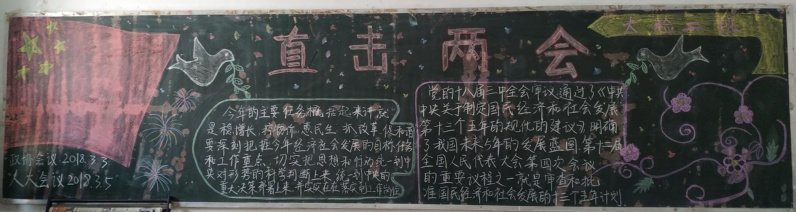 直击两会
政协会议 2018.3.3
人大会议 2018.3.5
今年的主要任务概括起来讲就
是稳增长 调结构 惠民生 抓改革
要深刻把握今年经济社会发展的目标任务
和工作重点,切实把思想和行动统一到中
央对形势的科学判断上来 统一到中央的
重大决策部署上来
党的十八届三中全会审议通过了《中共
中央关于制定国民经济和社会发展
第十三个五年的规化的建议》明确
了我国未来5年的发展蓝图 第十二届
全国人民代表大会第四次会议
的重要议程之一就是审查和批
准国民经济和社会发展的十三个五年计划